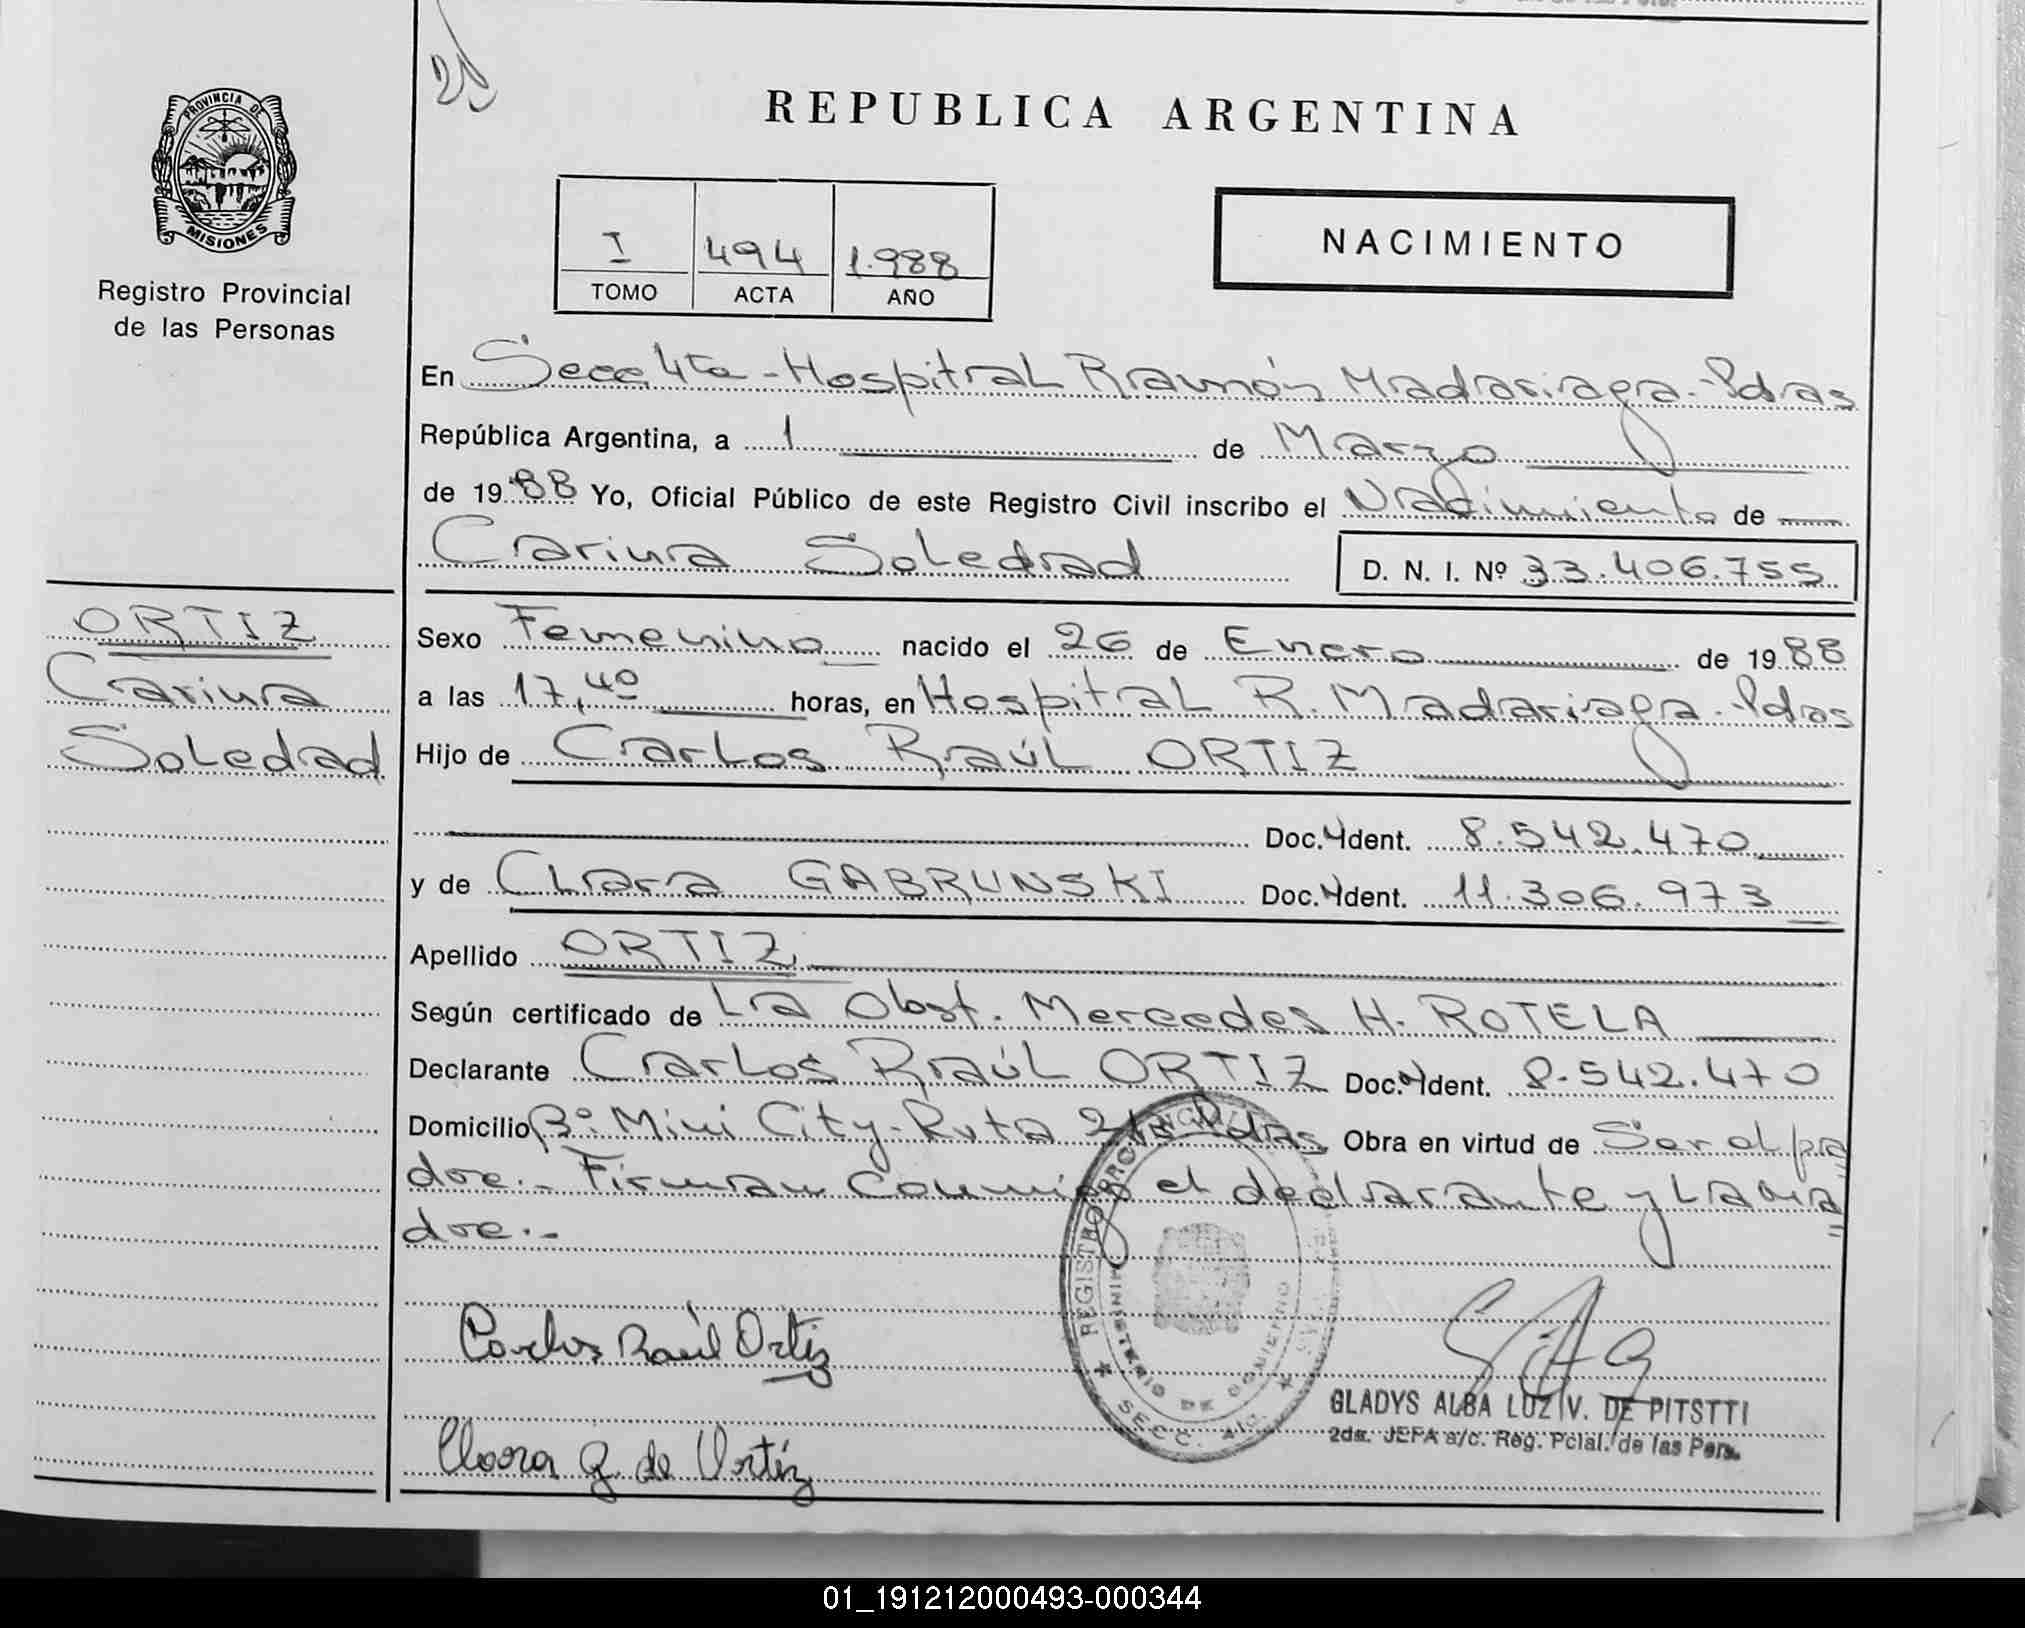 PROVINCIA DE
MISIONES
Registro Provincial
de las Personas
REPUBLICA ARGENTINA
I 494 1.988
TOMO ACTA AÑO
NACIMIENTO
En Secc 4ta - Hospital Ramón Madariaga - Pdas
República Argentina, a 1 de Marzo
de 1988 Yo, Oficial Público de este Registro Civil inscribo el Nacimiento de
Carina Soledad D. N. I. Nº 33.406.755
ORTIZ
Carina
Soledad
Sexo Femenino nacido el 26 de Enero de 1988
a las 17,40 horas, en Hospital R. Madariaga - Pdas
Hijo de Carlos Raúl ORTIZ
Doc. Ident. 8.542.470
y de Clara GABRUNSKI Doc. Ident. 11.306.973
Apellido ORTIZ
Según certificado de La Obst. Mercedes H. ROTELA
Declarante Carlos Raúl ORTIZ Doc. Ident. 8.542.470
Domicilio Bº Mini City - Ruta Pdas Obra en virtud de Ser el pa
dre.- Firman conmigo el declarante y La Ma
dre.-
REGISTRO PROVINCIAL
MINISTERIO DE GOBIERNO
SECC. 4ta.
Carlos Raúl Ortiz
GLADYS ALBA LUZ V. DE PITSTTI
2da. JEFA a/c. Reg. Pcial. de las Pers.
Clara G de Ortiz
01_191212000493-000344